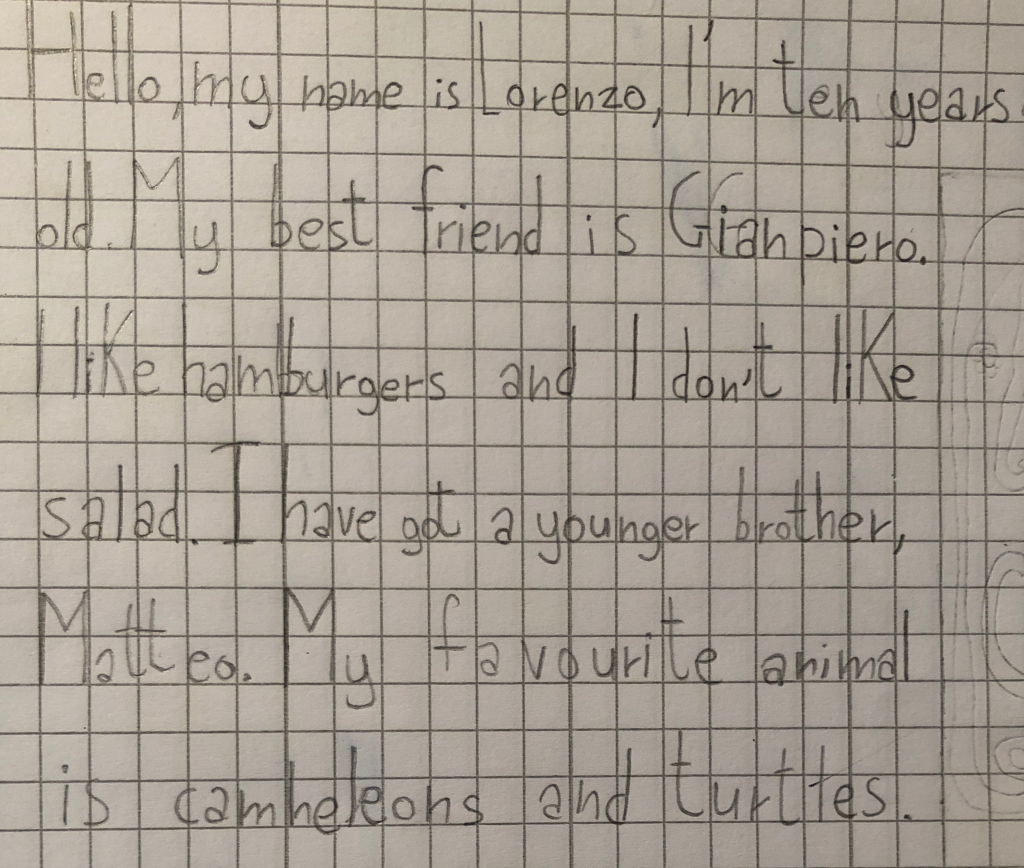 Hello, my name is Lorenzo, I'm ten years
old. My best friend is Gianpiero.
I like hamburgers and I don't like
salad. I have got a younger brother,
Matteo. My favourite animal
is camheleons and turttes.